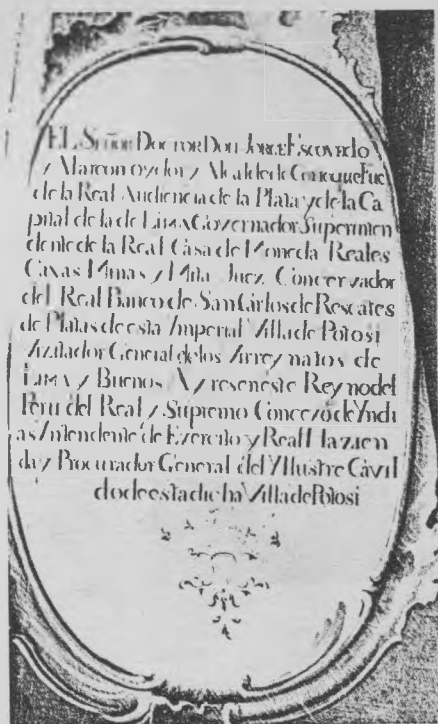 EL Señor Doctor Don Jorge Escovedo
y Alarcon oydor y Alcalde de Corte que fue
de la Real Audiencia de la Plata y de la Ca
pital de la de Lima Governador Superinten
dente de la Real Casa de Moneda Reales
Caxas Minas y Mita Juez Concervador
del Real Banco de San Carlos de Rescates
de Platas de esta Imperial Villa de Potosi
Vizitador General de los Virreynatos de
Lima y Buenos Ayres en este Reyno del
Peru del Real y Supremo Concexo de Yndi
as Yntendente de Exercito y Real Hazien
da y Procurador General del Yllustre Cavil
do de esta dicha Villa de Potosi